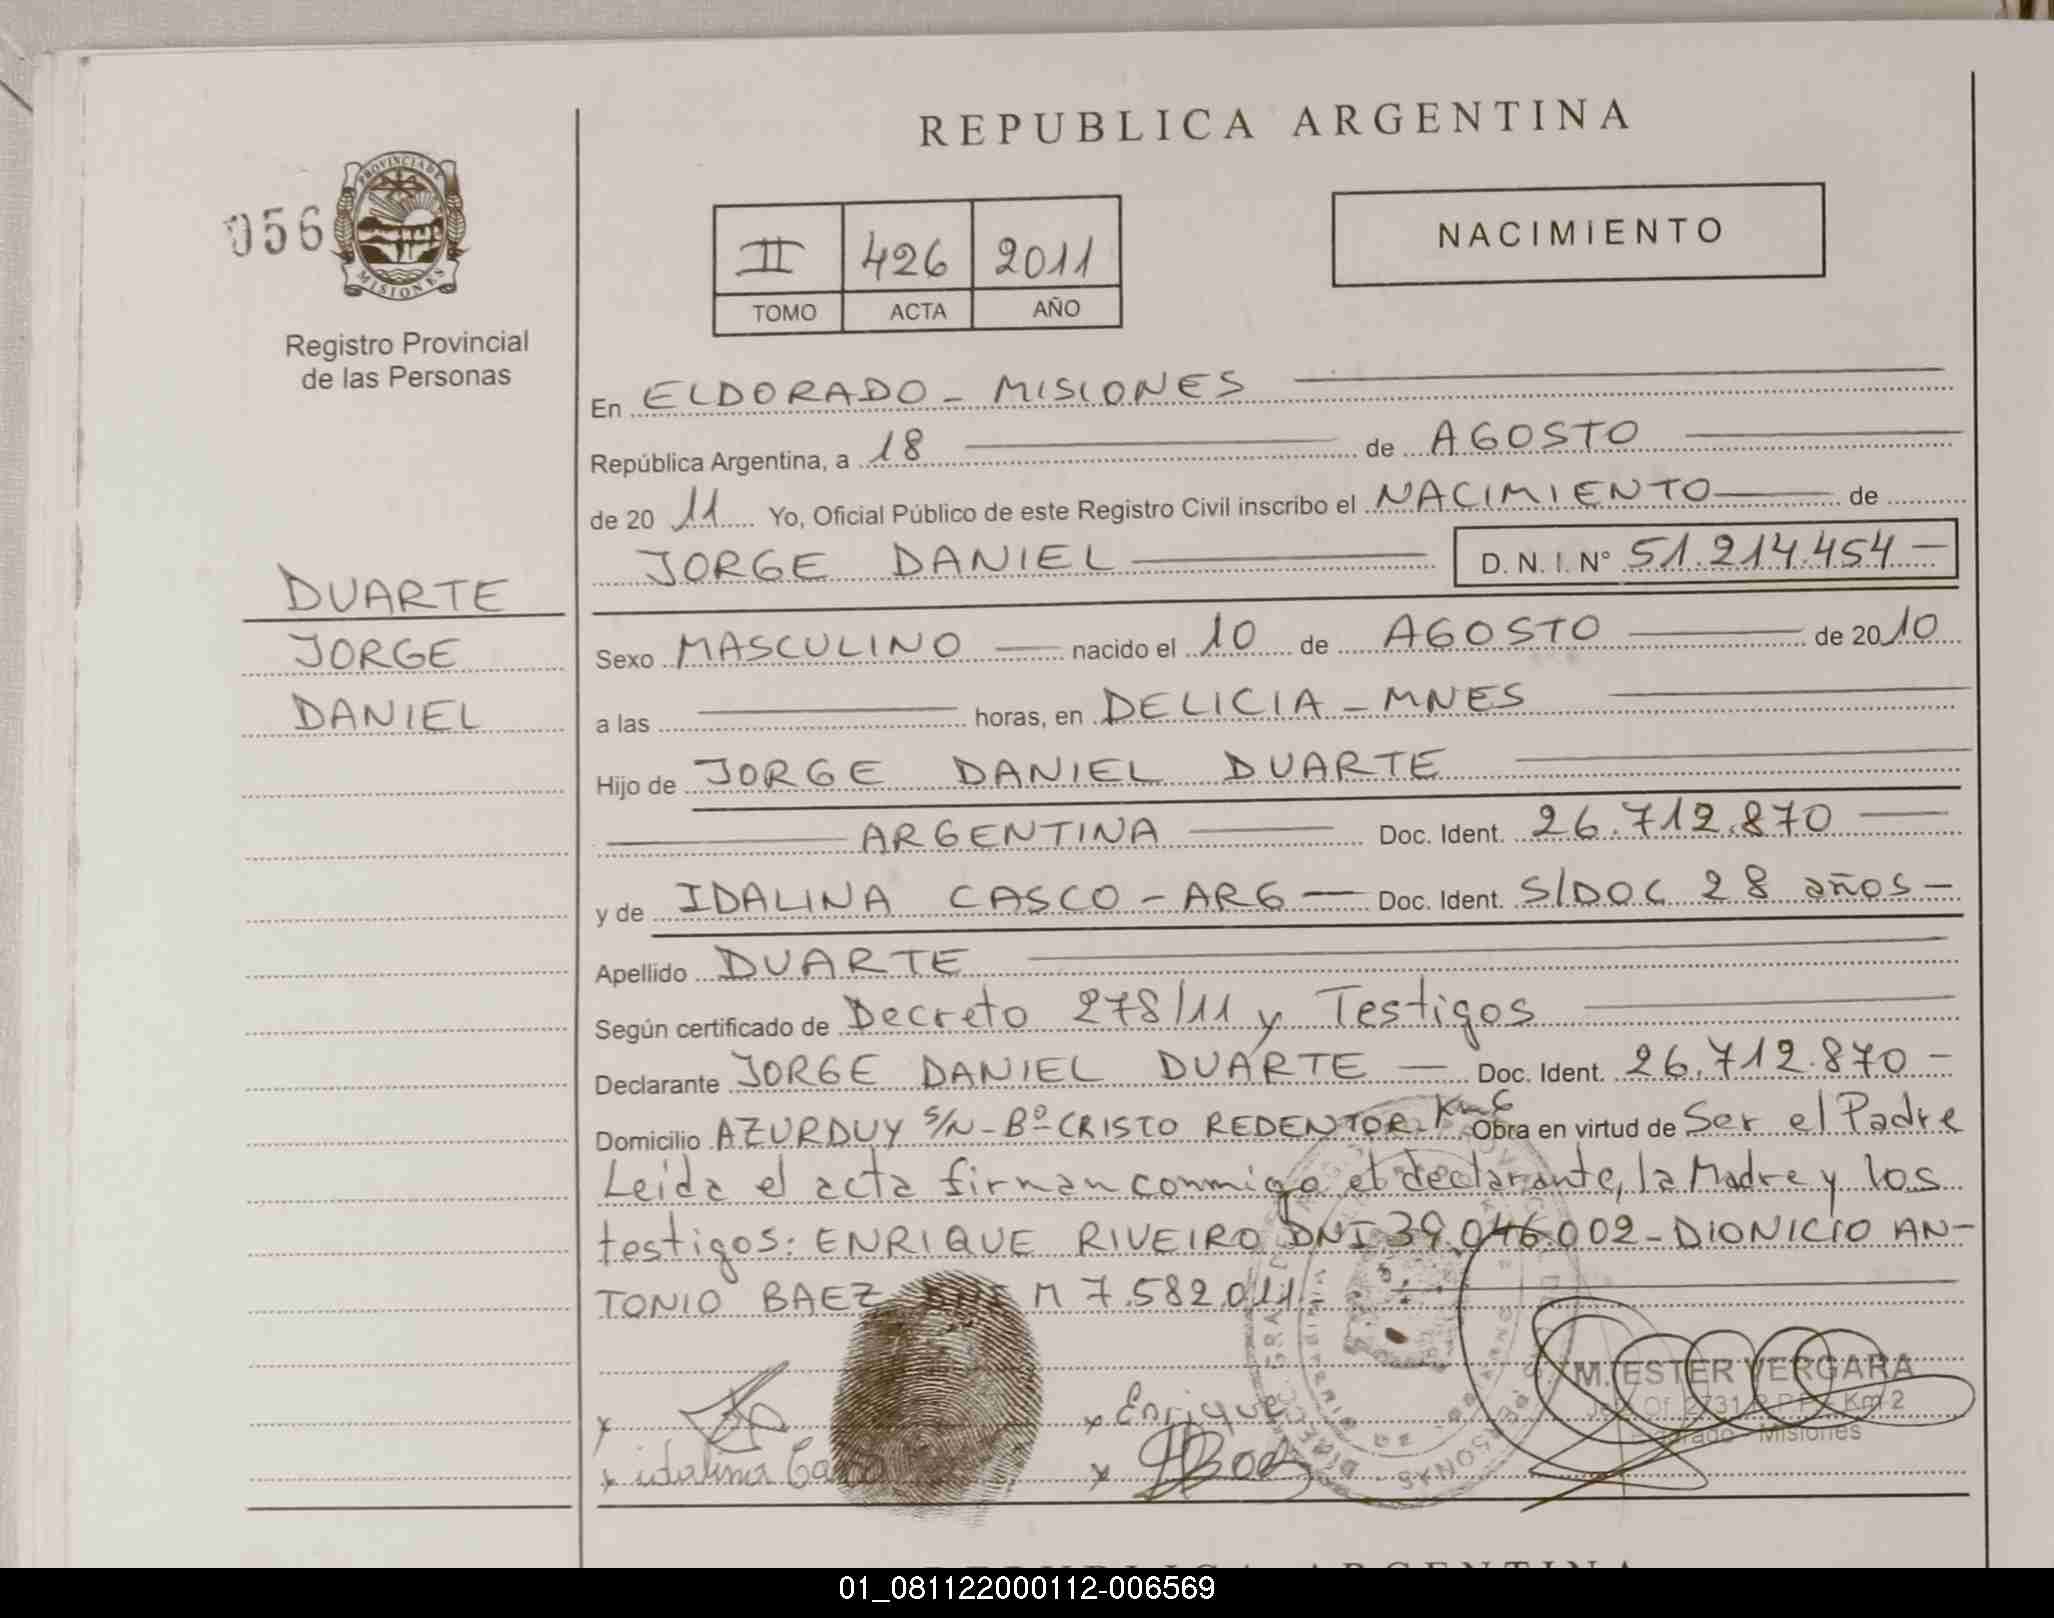 REPUBLICA ARGENTINA
056
PROVINCIA DE
MISIONES
Registro Provincial
de las Personas
II 426 2011
TOMO ACTA AÑO
NACIMIENTO
En ELDORADO - MISIONES
República Argentina, a 18 de AGOSTO
de 20 11 Yo, Oficial Público de este Registro Civil inscribo el NACIMIENTO de
JORGE DANIEL D. N. I. N° 51.214.454 -
DUARTE
JORGE
DANIEL
Sexo MASCULINO nacido el 10 de AGOSTO de 2010
a las horas, en DELICIA - MNES
Hijo de JORGE DANIEL DUARTE
ARGENTINA Doc. Ident. 26.712.870
y de IDALINA CASCO - ARG - Doc. Ident. S/DOC 28 años -
Apellido DUARTE
Según certificado de Decreto 278/11 y Testigos
Declarante JORGE DANIEL DUARTE - Doc. Ident. 26.712.870 -
Domicilio AZURDUY S/N - Bº CRISTO REDENTOR - Km 6 Obra en virtud de Ser el Padre
Leida el acta firman conmigo el declarante, la Madre y los
testigos: ENRIQUE RIVEIRO DNI 39.046.002 - DIONICIO AN-
TONIO BAEZ DNI M 7.582.011 -
x x Enrique
x idalina Casco x
M. ESTER VERGARA
Km 2
Misiones
01_081122000112-006569